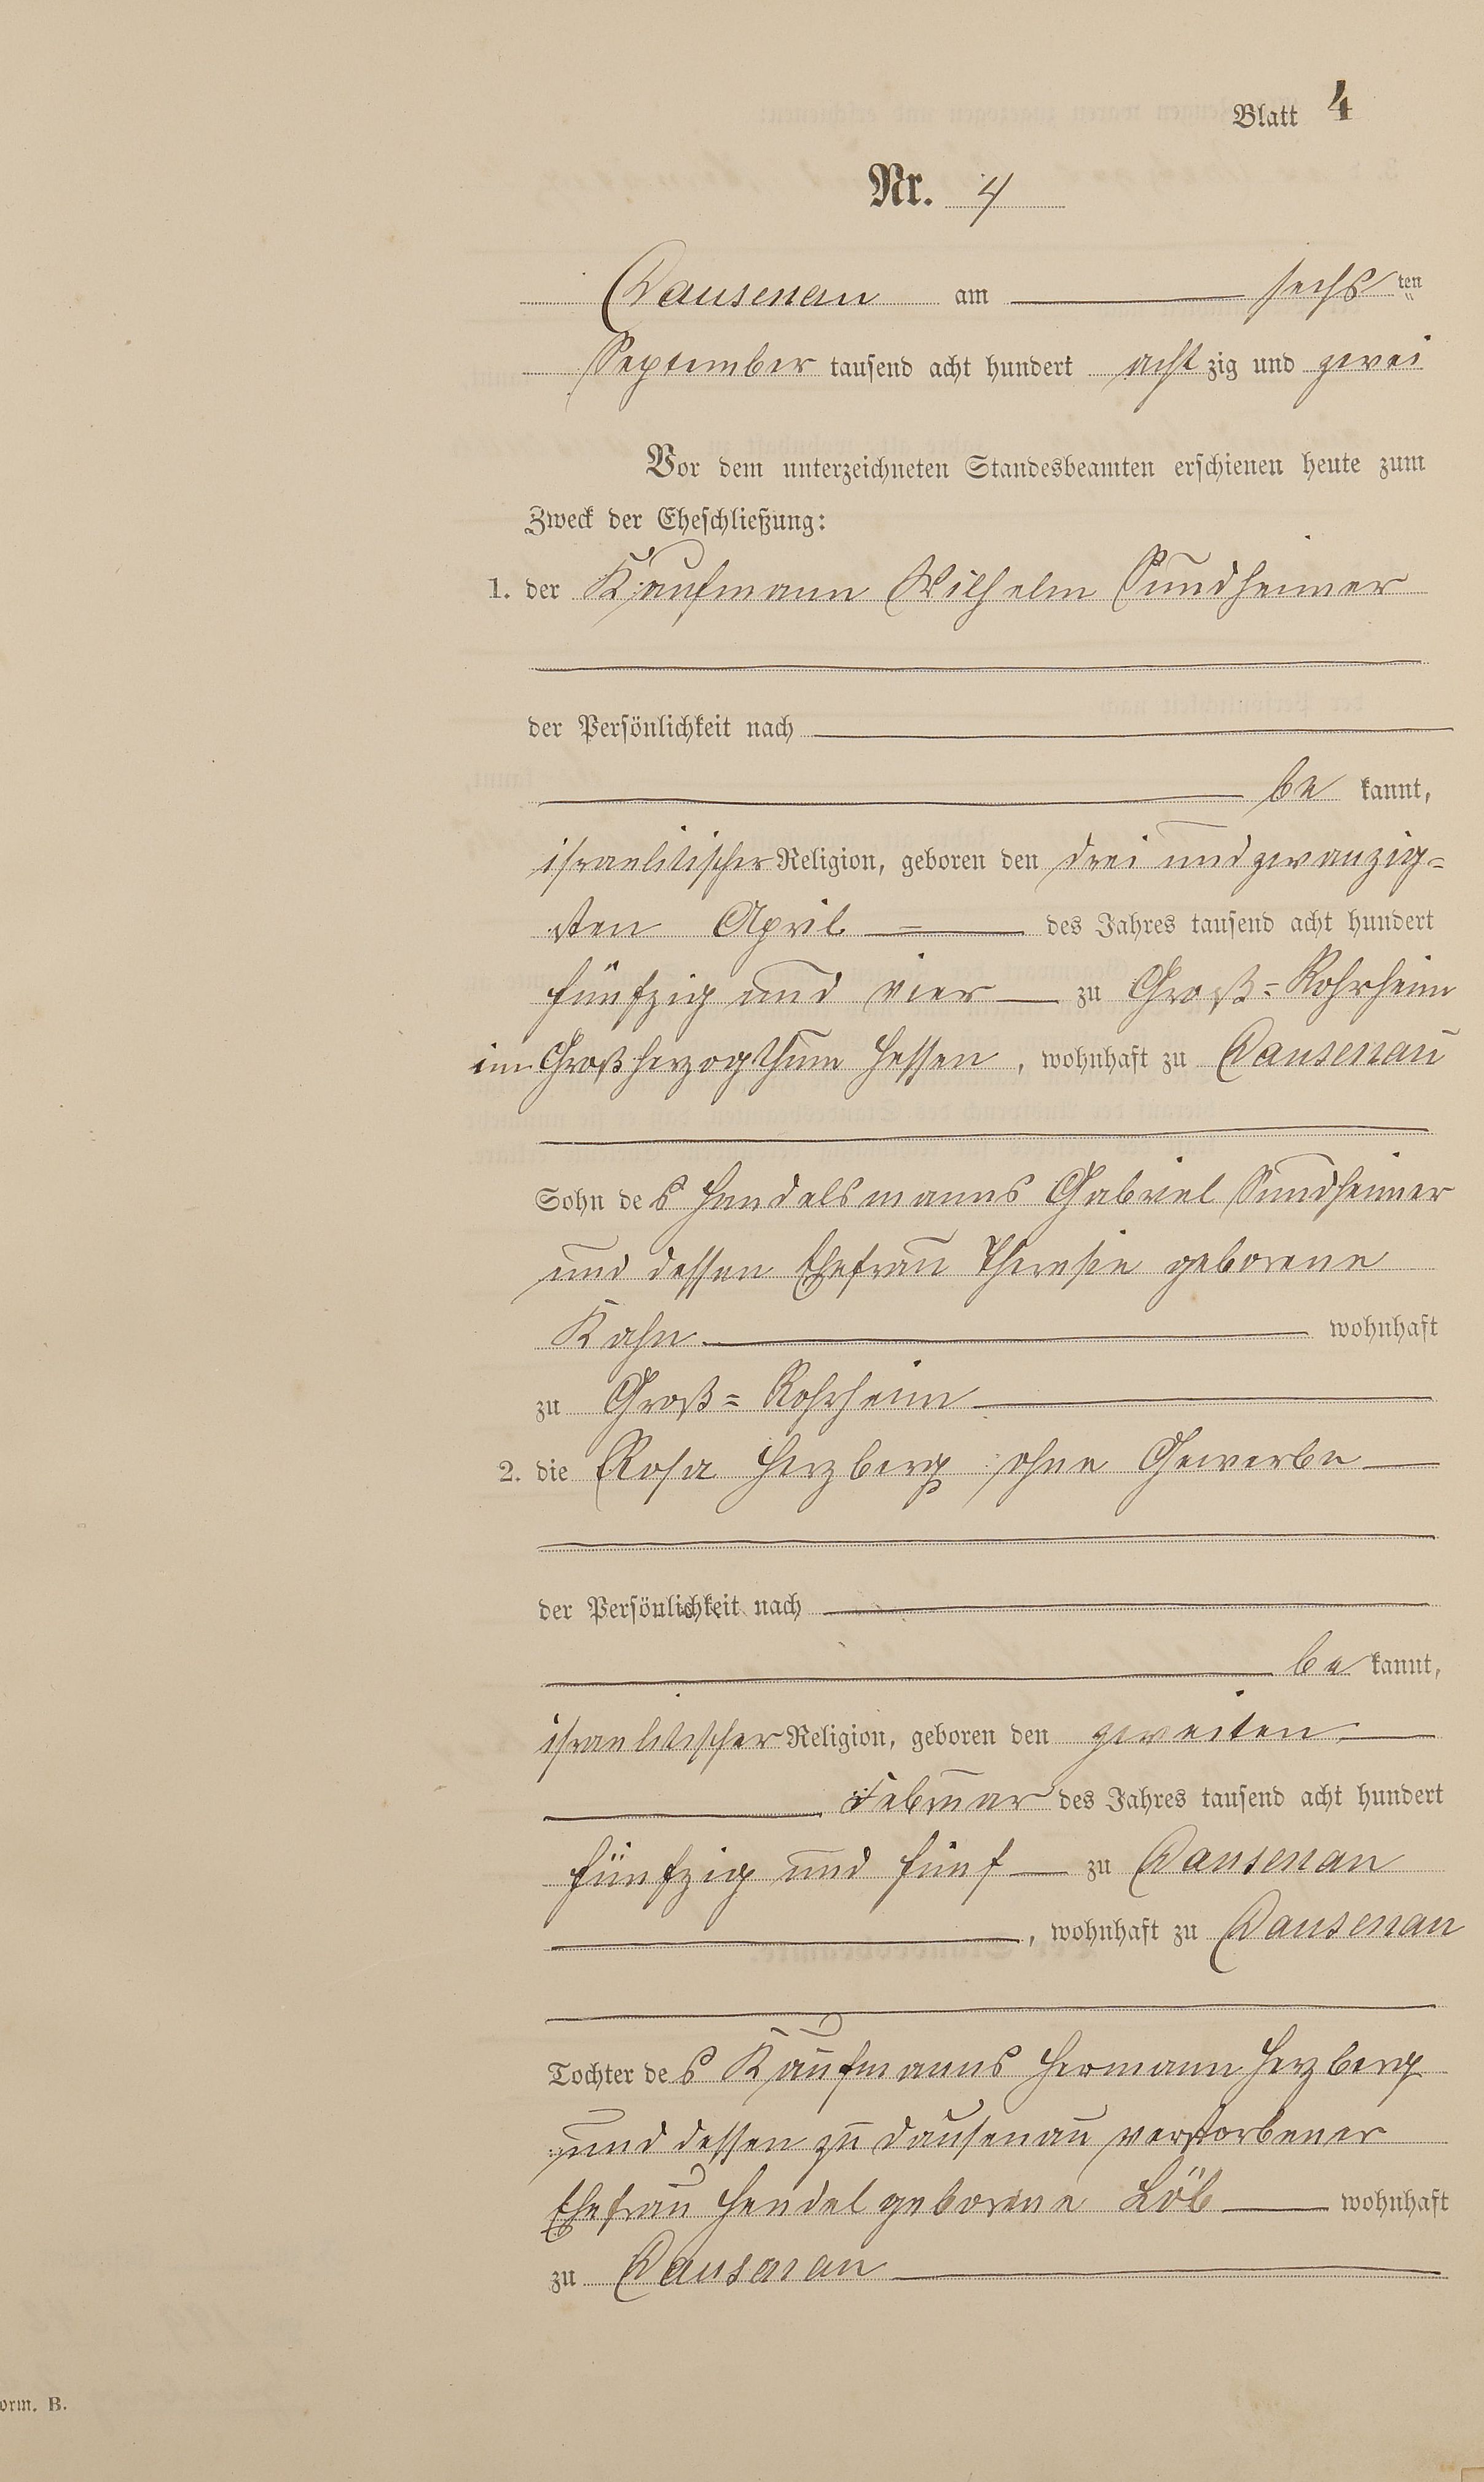 Blatt 4
Nr. 4
Dausenau am sechsten
September tausend acht hundert achtzig und zwei
Vor dem unterzeichneten Standesbeamten erschienen heute zum
Zweck der Eheschließung:
1. der Kaufmann Wilhelm Sundheimer
der Persönlichkeit nach
be kannt,
israelitischer Religion, geboren den drei und zwanzig=
sten April des Jahres tausend acht hundert
fünfzig und vier zu Groß=Rohrheim
im Großherzogthum Hessen, wohnhaft zu Dausenau
Sohn des Handelsmanns Gabriel Sundheimer
und dessen Ehefrau Theresie geborene
Kahn wohnhaft
zu Groß=Rohrheim
2. die Rosa Herzberg ohne Gewerbe
der Persönlichkeit nach
be kannt,
israelitischer Religion, geboren den zweiten
Februar des Jahres tausend acht hundert
fünfzig und fünf zu Dausenau
, wohnhaft zu Dausenau
Tochter des Kaufmanns Hermann Herzberg
und dessen zu Dausenau verstorbener
Ehefrau Hendel geborene Löb wohnhaft
zu Dausenau
orm. B.